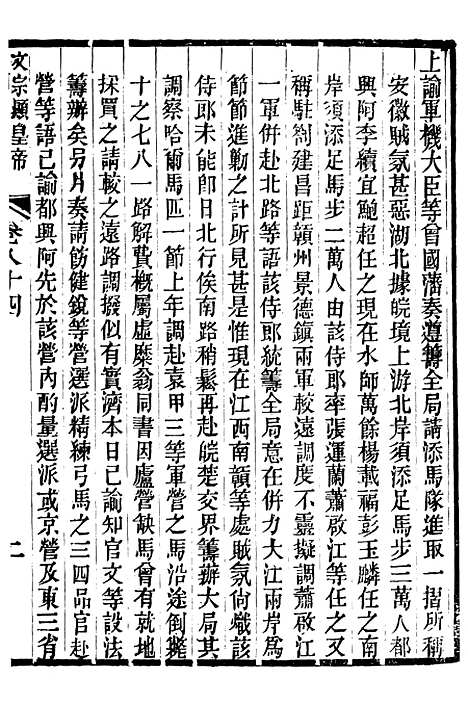 上諭軍機大臣等曾國藩奏遵籌全局請添馬隊進取一摺所稱
安徽賊氛甚惡湖北據皖境上游北岸須添足馬步三萬人都
興阿李續宜鮑超任之現在水師萬餘楊載福彭玉麟任之南
岸須添足馬步二萬人由該侍郎率張運蘭蕭啟江等任之又
稱駐劄建昌距贛州景德鎮兩軍較遠調度不靈擬調蕭啟江
一軍併赴北路等語該侍郎統籌全局意在併力大江兩岸為
節節進勦之計所見甚是惟現在江西南贛等處賊氛尚熾該
侍郎未能即日北行俟南路稍鬆再赴皖楚交界籌辦大局其
調察哈爾馬匹一節上年調赴袁甲三等軍營之馬沿途倒斃
十之七八一路解費概屬虛糜翁同書因廬營缺馬曾有就地
採買之請較之遠路調撥似有實濟本日已諭知官文等設法
籌辦矣另片奏請飭健銳等營選派精練弓馬之三四品官赴
營等語已諭都興阿先於該營內酌量選派或京營及東三省
文宗顯皇帝 卷八十四 二